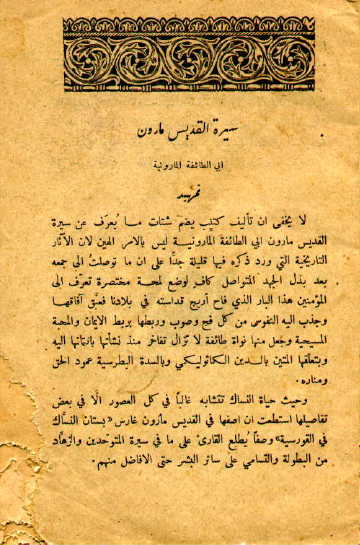 سيرة القديس مارون
ابي الطائفة المارونية
تمهيد
لا يخفى ان تأليف كتاب يضم شتات ما يُعرَف عن سيرة
القديس مارون ابي الطائفة المارونيـة ليس بالامر الهين لان الآثار
التاريخية التي ورد ذكره فيها قليلة جدًّا على ان ما توصلتُ الى جمعه
بعد بذل الجهد المتواصل كافٍ لوضع لمحـة مختصرة تعرّف الى
المؤمنين هذا البار الذي فاح أريج قداسته في بلادنا فعبَّق آفاقها
وجذب اليه النفوس من كل فجّ وصوب وربطها بربط الايمان والمحبة
المسيحية وجعل منها نواة طائفة لا تزال تفاخر منذ نشأتها بانتمائها اليه
وبتعلقها المتين بالـدين الكاثوليـكي وبالسدة البطرسية عمود الحق
ومناره.
وحيث حياة النساك تتشابه غالبًا في كل العصور الّا في بعض
تفاصيلها استطعت ان اصفها في القديس مارون غارس «بستان النسَّاك
في القورسية» وصفًا يُطلع القارئ على ما في سيرة المتوحّدين والزهَّاد
من البطولة والتسامي على سائر البشر حتى الافاضل منهم.